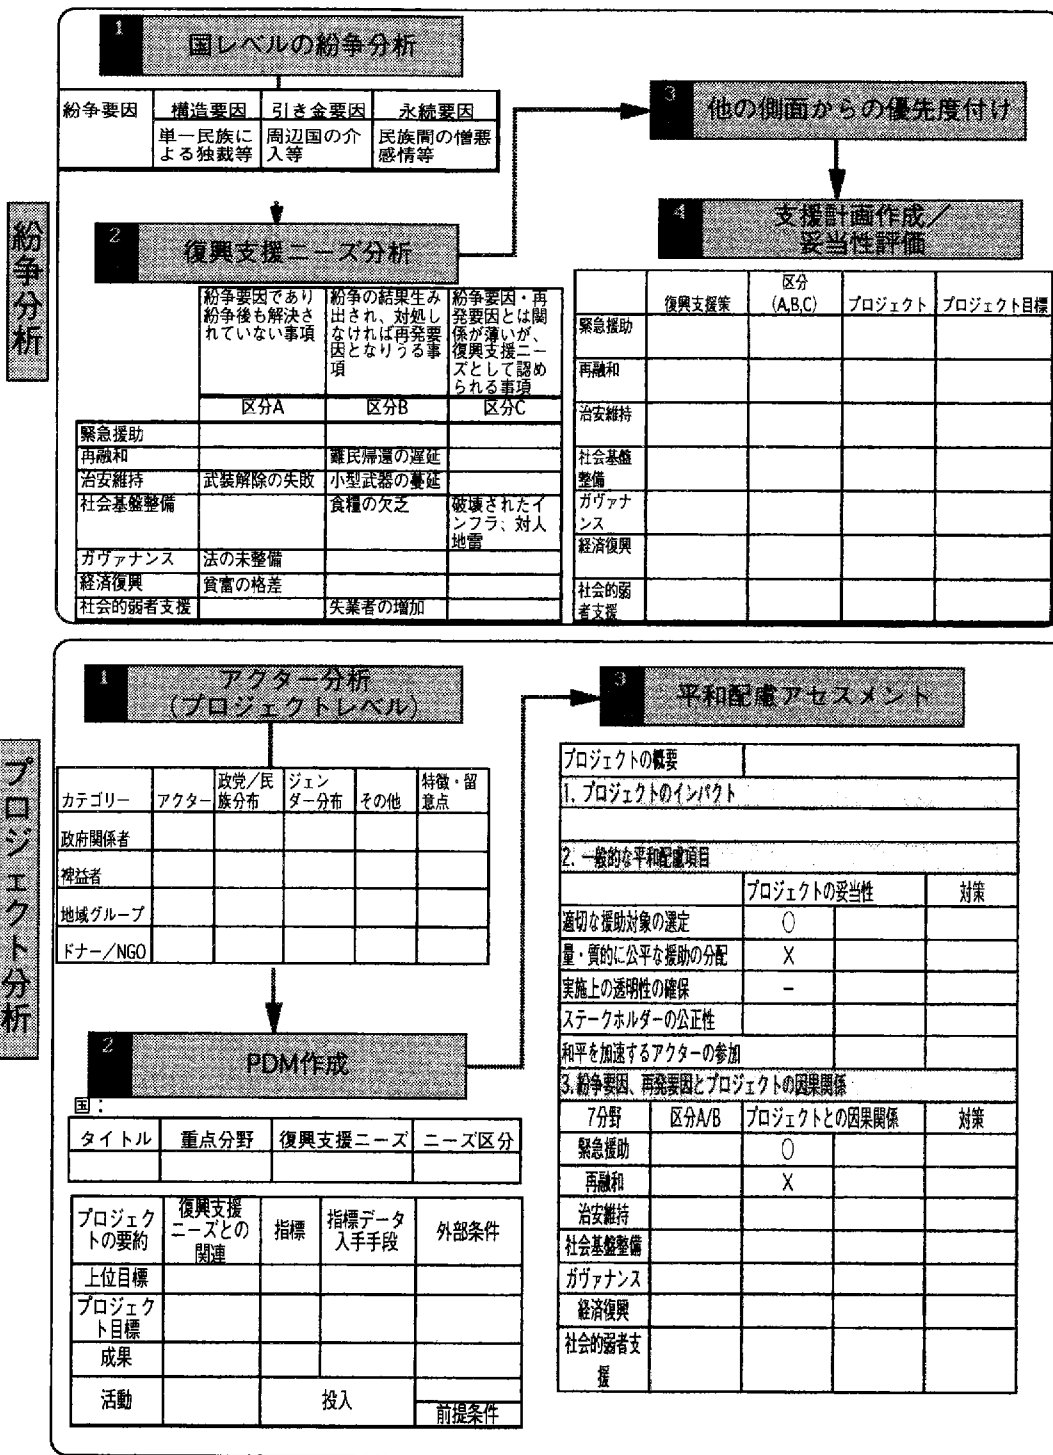 紛争分析
1
国レベルの紛争分析
紛争要因 構造要因 引き金要因 永続要因
単一民族に 周辺国の介 民族間の憎悪
よる独裁等 入等 感情等
2
復興支援ニーズ分析
紛争要因であり
紛争後も解決さ
れていない事項
紛争の結果生み
出され、対処し
なければ再発要
因となりうる事
項
紛争要因・再
発要因とは関
係が薄いが、
復興支援ニー
ズとして認め
られる事項
区分A 区分B 区分C
緊急援助
再融和 難民帰還の遅延
治安維持 武装解除の失敗 小型武器の蔓延
社会基盤整備 食糧の欠乏 破壊されたイ
ンフラ、対人
地雷
ガヴァナンス 法の未整備
経済復興 貧富の格差
社会的弱者支援 失業者の増加
3
他の側面からの優先度付け
4
支援計画作成／
妥当性評価
復興支援策 区分
(A,B,C) プロジェクト プロジェクト目標
緊急援助
再融和
治安維持
社会基盤
整備
ガヴァナ
ンス
経済復興
社会的弱
者支援
プロジェクト分析
1
アクター分析
(プロジェクトレベル)
カテゴリー アクター 政党／民
族分布 ジェン
ダー分布 その他 特徴・留
意点
政府関係者
裨益者
地域グループ
ドナー／NGO
2
PDM作成
国：
タイトル 重点分野 復興支援ニーズ ニーズ区分
プロジェク
トの要約
復興支援
ニーズとの
関連
指標
指標データ
入手手段
外部条件
上位目標
プロジェク
ト目標
成果
活動 投入
前提条件
3
平和配慮アセスメント
プロジェクトの概要
1. プロジェクトのインパクト
2. 一般的な平和配慮項目
プロジェクトの妥当性 対策
適切な援助対象の選定 ○
量・質的に公平な援助の分配 ×
実施上の透明性の確保 −
ステークホルダーの公正性
和平を加速するアクターの参加
3. 紛争要因、再発要因とプロジェクトの因果関係
7分野 区分A/B プロジェクトとの因果関係 対策
緊急援助 ○
再融和 ×
治安維持
社会基盤整備
ガヴァナンス
経済復興
社会的弱者支
援